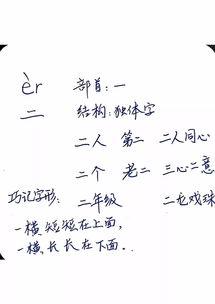 èr 部首：一
二 结构：独体字
二人 第二 二人同心
二个 老二 三心二意
巧记字形： 二年级 二龙戏珠
一横短短在上面，
一横长长在下面．